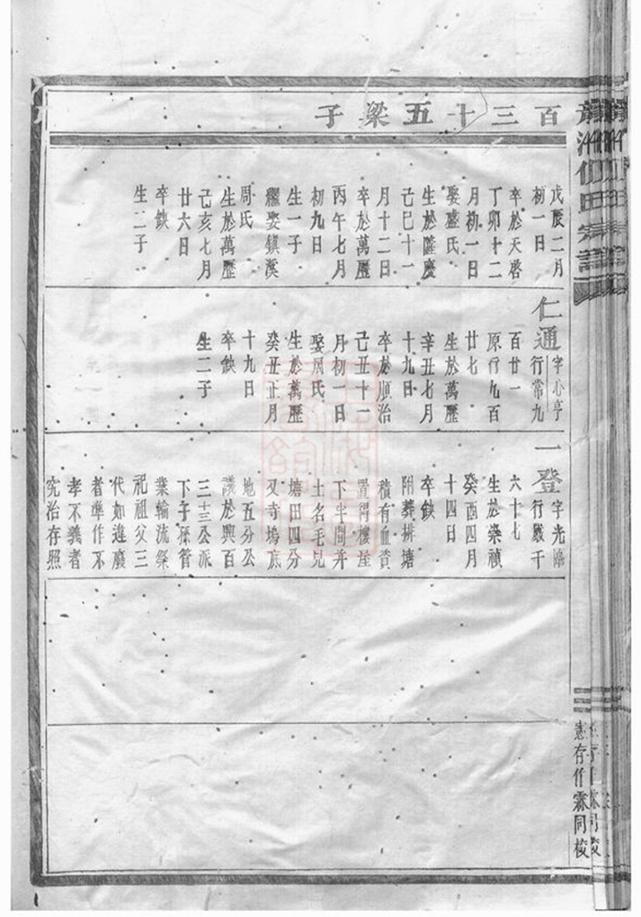 百三十五梁子
戊辰二月
初一日
卒於天啓
丁卯十二
月初一日
娶盛氏
生於隆慶
己巳十一
月十二日
卒於萬歷
丙午七月
初九日
生一子
繼娶鎮溪
周氏
生於萬歷
己亥七月
廿六日
卒缺
生二子
仁通
字心亨
行常九
百廿一
原行九百
廿七
生於萬歷
辛丑七月
十九日
卒於順治
己丑十一
月初一日
娶周氏
生於萬歷
癸丑正月
十九日
卒缺
生二子
一登
字光
行嚴千
六十七
生於崇禎
癸酉四月
十四日
卒缺
附葬排塘
積有血資
置得樓屋
下半間并
土名毛兒
塘田四分
又寺塢底
地五分公
議於興百
三十三公派
下子孫管
業輪流祭
祀祖父三
代如違廢
者準作不
孝不義者
究治存照
氏宗譜
憲存仵霖同校